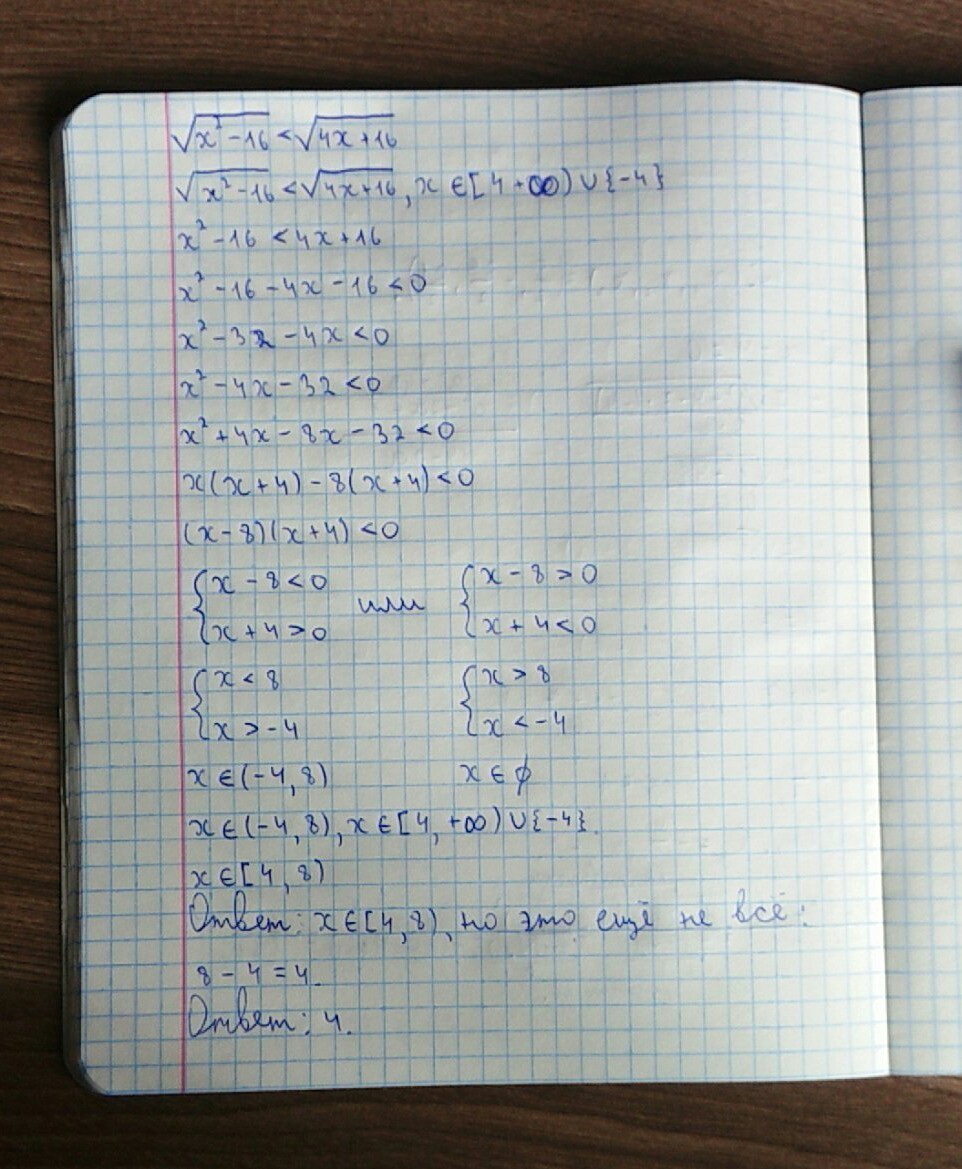 √x²-16 < √4x+16
√x²-16 < √4x+16, x ∈ [4 +∞) ∪ {-4}
x² - 16 < 4x + 16
x² - 16 - 4x - 16 < 0
x² - 32 - 4x < 0
x² - 4x - 32 < 0
x² + 4x - 8x - 32 < 0
x(x+4) - 8(x+4) < 0
(x-8)(x+4) < 0
{x - 8 < 0 или {x - 8 > 0
x + 4 > 0 x + 4 < 0
{x < 8 {x > 8
x > -4 x < -4
x ∈ (-4, 8) x ∈ ϕ
x ∈ (-4, 8), x ∈ [4, +∞) ∪ {-4}.
x ∈ [4, 8)
Ответ: x ∈ [4, 8), но это ещё не всё:
8 - 4 = 4.
Ответ: 4.